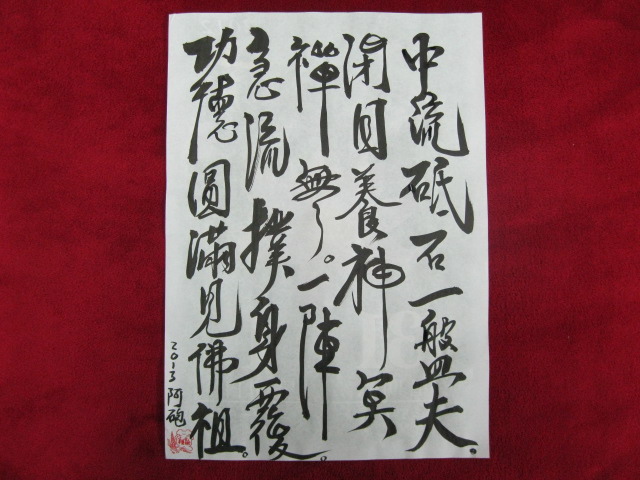 中流砥石一盤夫、
閉目養神冥
禪無了。一陣
急流撲身覆。
功德圓滿見佛祖。
2013 阿砲